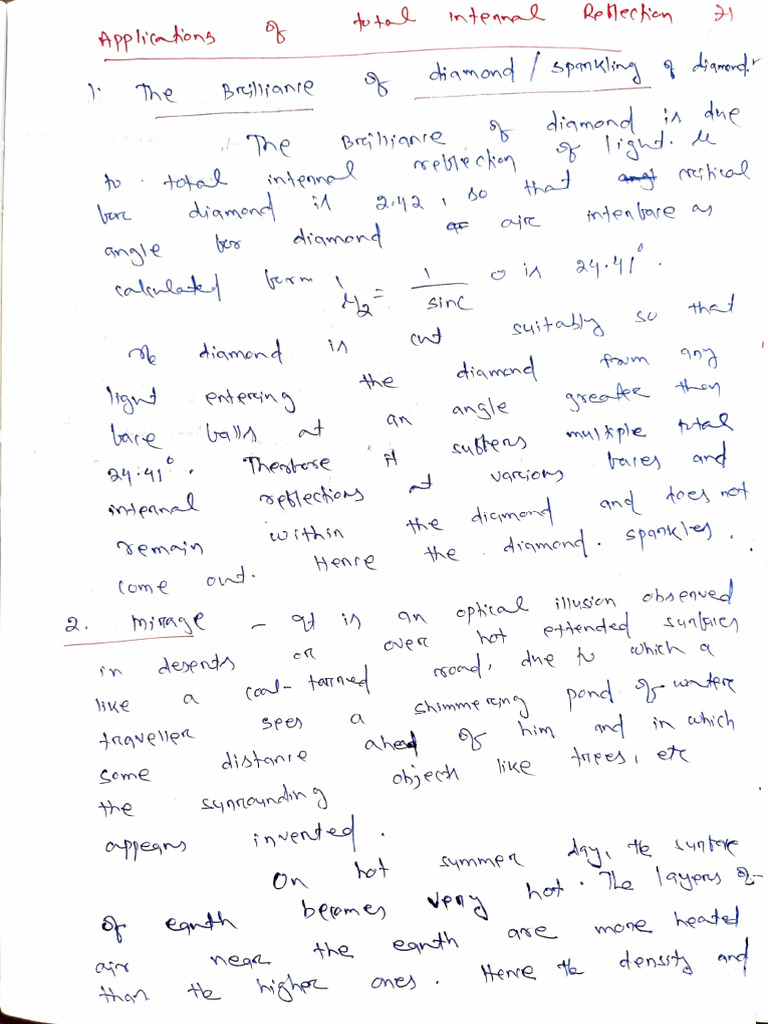 Applications of total internal Reflection 21
1. The Brilliance of diamond / sparkling of diamond.
The Brilliance of diamond is due
to total internal reflection of light. μ
for diamond is 2.42, so that critical
angle for diamond air interface as
calculated form ¹μ₂ = 1/sinc is 24.41°.
The diamond is cut suitably so that
light entering the diamond from any
face falls at an angle greater then
24.41°. Therfore it suffers multiple total
internal reflections at various faces and
remain within the diamond and does not
come out. Hence the diamond sparkles.
2. Mirage - It is an optical illusion observed
in deserts or over hot extended surfaces
like a coal-tarred road, due to which a
traveller sees a shimmering pond of water
some distance ahead of him and in which
the surrounding objects like trees, etc
appears inverted.
On hot summer day, the surface
of earth becomes very hot. The layers of
air near the earth are more heated
than the higher ones. Hence the density and